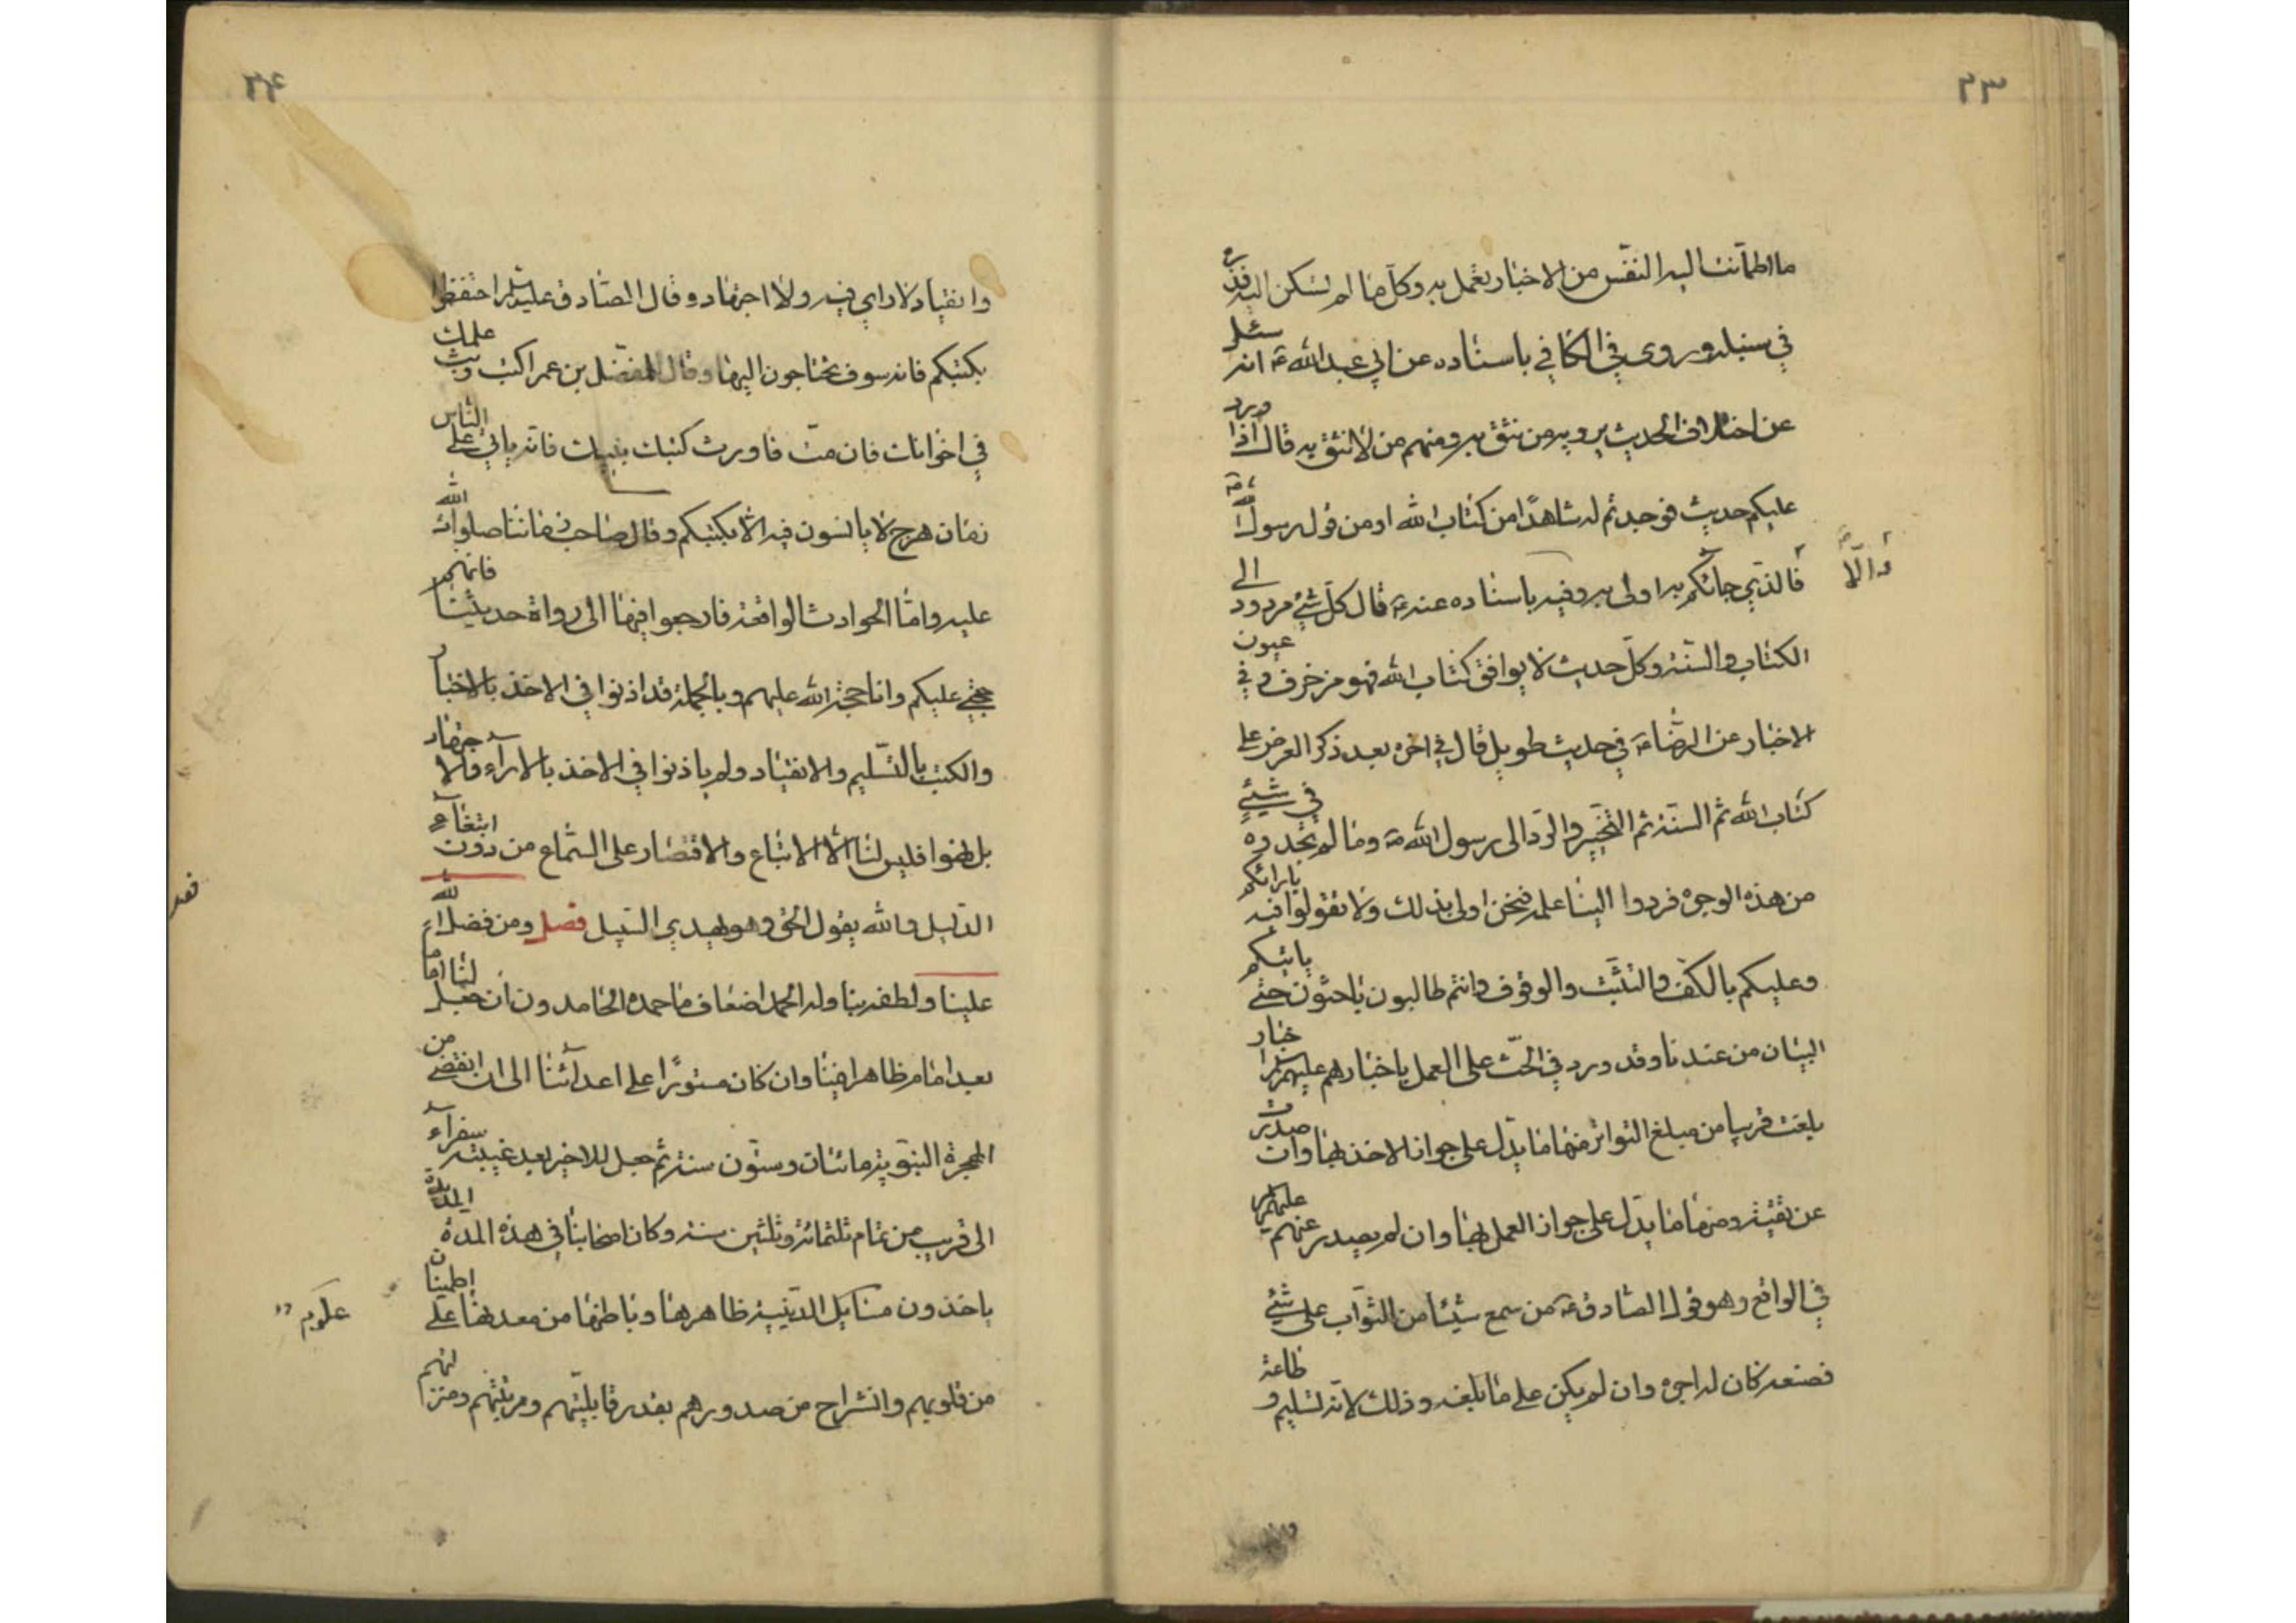 ٣٣
ما اطمأنت اليه النفس من الاخبار يعمل به وكل ما لم تسكن اليه فذره
في سنبله وروى في الكافي باسناده عن ابي عبد الله ع انه سئل
عن اختلاف الحديث يرويه من نثق به ومنهم من لا نثق به قال اذا ورد
عليكم حديث فوجدتم له شاهدًا من كتاب الله او من قول رسول الله ص
والّا
فالذي جائكم به اولى به وفيه باسناده عنه ع قال كل شئ مردود الى
الكتاب والسنة وكل حديث لا يوافق كتاب الله فهو زخرف وفي عيون
الاخبار عن الرضا ع في حديث طويل قال في اخره بعد ذكر العرض على
كتاب الله ثم السنة ثم التخيير والرد الى رسول الله ص وما لم تجدوه في شيئٍ
من هذه الوجوه فردوا الينا علمه فنحن اولى بذلك ولا تقولوا فيه بارائكم
وعليكم بالكف والتثبت والوقوف وانتم طالبون باحثون حتى ياتيكم
البيان من عندنا وقد ورد في الحث على العمل باخبارهم عليهم السلم اخبار
بلغت قريبا من مبلغ التواتر منها ما يدل على جواز الاخذ بها وان صدرت
عن تقية ومنها ما يدل على جواز العمل بها وان لم يصدر عنهم عليهم السلم
في الواقع وهو قول الصادق ع من سمع شيئا من الثواب على شئ
فصنعه كان له اجره وان لم يكن على ما بلغه وذلك لانه تسليم و طاعة
٣٤
وانقياد لا راي فيه ولا اجتهاد وقال الصادق عليه السلم احتفظوا
بكتبكم فانه سوف تحتاجون اليها وقال للمفضل بن عمر اكتب وبث علمك
في اخوانك فان مت فاورث كتبك بنيك فانه ياتي على الناس
زمان هرج لا يانسون فيه الا بكتبكم وقال صاحب زماننا صلوات الله
عليه واما الحوادث الواقعة فارجعوا فيها الى رواة حديثنا فانهم
حجتي عليكم وانا حجة الله عليهم وبالجملة قد اذنوا في الاخذ بالاخبار
والكتب بالتسليم والانقياد ولم ياذنوا في الاخذ بالاراء والاجتهاد
بل نهوا فليس لنا الا الاتباع والاقتصار على السماع من دون ابتغاء
الدليل والله يقول الحق وهو يهدي السبيل فصل ومن فضل الله
علينا ولطفه بنا وله الحمد اضعاف ما حمده الحامدون ان جعل لنا اماما
بعد امام ظاهرا فينا وان كان مستورًا على اعدائنا الى ان انقضى من
الهجرة النبوية مائتان وستون سنة ثم جعل للاخير بعد غيبته سفراء
الى قريب من تمام ثلثمائة وثلثين سنة وكان اصحابنا في هذه المدة المديدة
ياخذون مسائل الدينية ظاهرها وباطنها من معدنها على اطمينان
علوم
من قلوبهم وانشراح من صدورهم بقدر قابليتهم ومرتبتهم ومنزلتهم